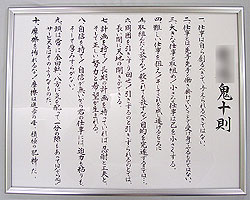 鬼十則
一、仕事は自ら創るべきで、与えられるべきでない。
二、仕事とは、先手先手と働き掛けていくことで、受け身でやるものではない。
三、大きな仕事と取組め、小さな仕事は己れを小さくする。
四、難しい仕事を狙え、そしてこれを成し遂げるところに進歩がある。
五、取組んだら放すな、殺されても放すな、目的完遂までは…
六、周囲を引きずり回せ、引きずるのと引きずられるのとでは、
長い間に天地のひらきができる。
七、計画を持て、長期の計画を持っていれば、忍耐と工夫と、
そして正しい努力と希望が生まれる。
八、自信を持て、自信がないから君の仕事には、迫力も粘りも、
そして厚味すらがない。
九、頭は常に全回転、八方に気を配って、一分の隙もあってはならぬ、
サービスとはそのようなものだ。
十、摩擦を怖れるな、摩擦は進歩の母、積極の肥料だ、